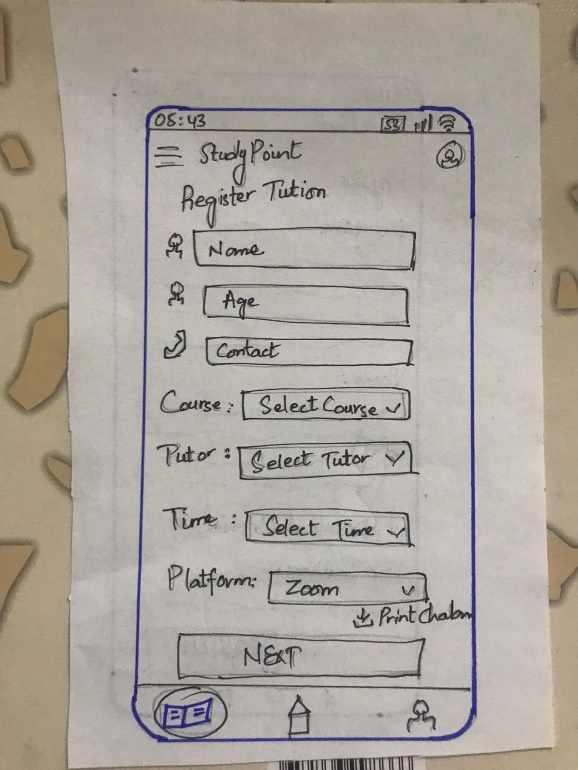 05:43 53
StudyPoint
Register Tution
Name
Age
Contact
Course: Select Course
Tutor: Select Tutor
Time: Select Time
Platform: Zoom
Print Chalan
NEXT